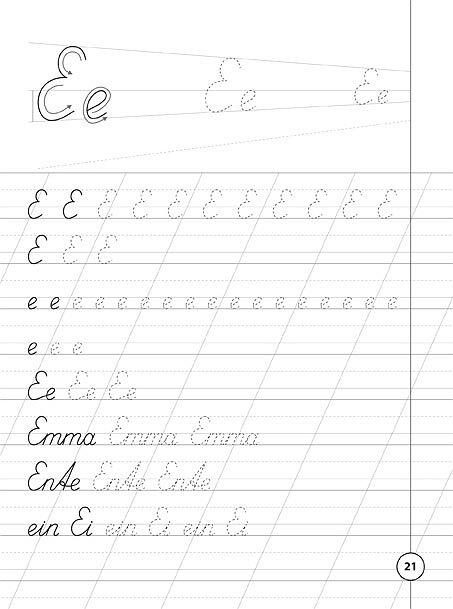 Ee Ee Ee
E E E E E E E E E E E
E E E
e e e e e e e e e e e e e e e e e
e e e
Ee Ee Ee
Emma Emma Emma
Ente Ente Ente
ein Ei ein Ei ein Ei
21